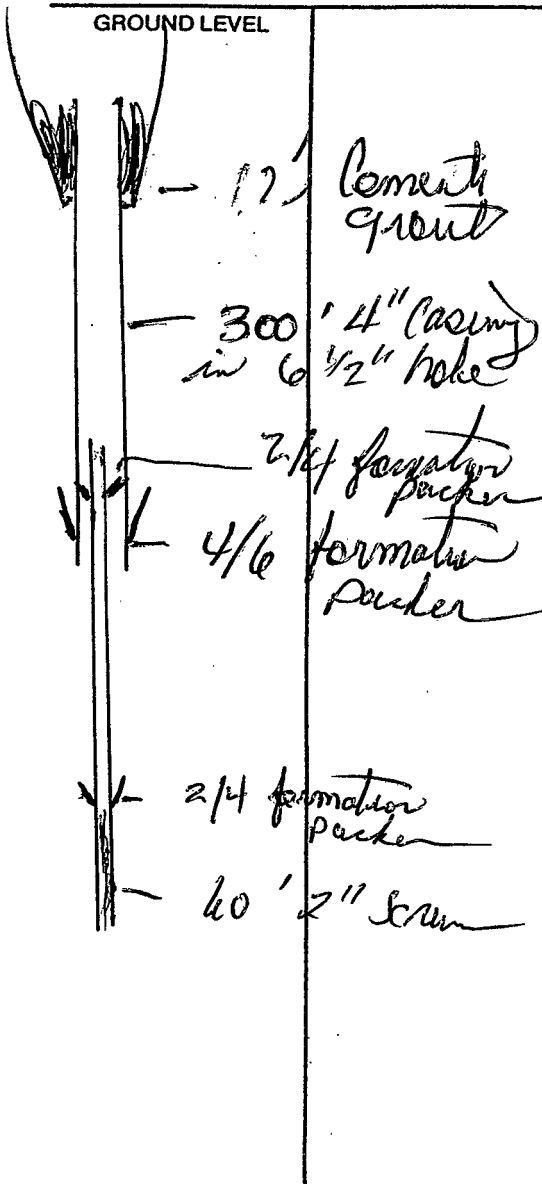 GROUND LEVEL
12' Cement
grout
300' 4" Casing
in 6 1/2" hole
2/4 formation
packer
4/6 formation
packer
2/4 formation
packer
60' 2" Screen